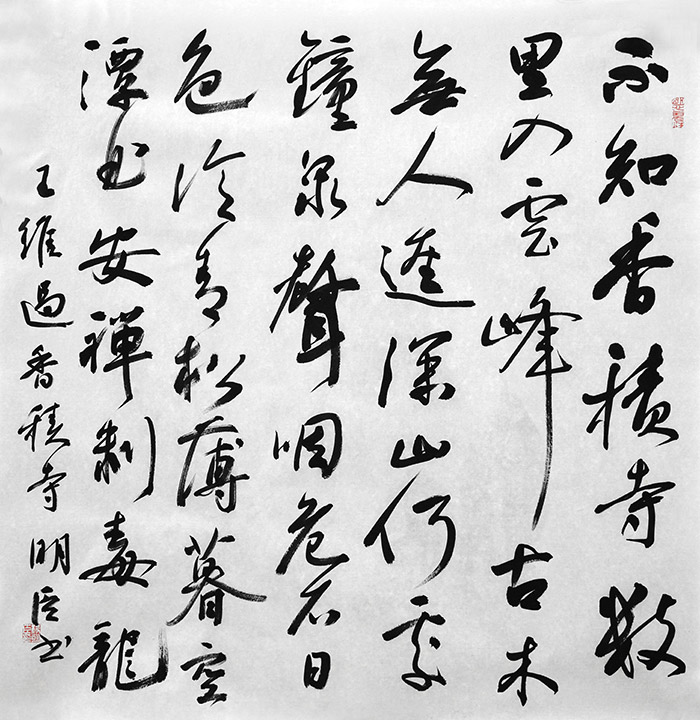 不知香積寺數
里入雲峰古木
無人逕深山何處
鐘泉聲咽危石日
色冷青松薄暮空
潭曲安禪制毒龍
王維過香積寺明书